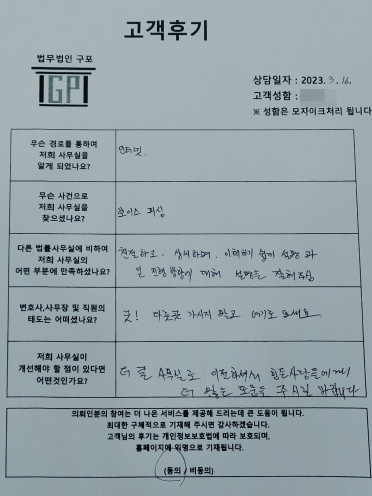 고객후기
법무법인 구포
GP
상담일자 : 2023. 3. 16.
고객성함 :
※ 성함은 모자이크처리 됩니다
무슨 경로를 통하여
저희 사무실을
알게 되었나요?
인터넷.
무슨 사건으로
저희 사무실을
찾으셨나요?
보이스 피싱
다른 법률사무실에 비하여
저희 사무실의
어떤 부분에 만족하셨나요?
친절하고. 상세하며. 이해하기 쉽게 설명 과
일 진행 방향에 대해 설명을 잘해주심
변호사,사무장 및 직원의
태도는 어떠셨나요?
굿! 다른곳 가시지 말고 여기로 오세요
저희 사무실이
개선해야 할 점이 있다면
어떤것인가요?
더 큰 사무실로 이전하셔서 힘든사람들에게
더 많은 도움을 주시길 바랍니다
의뢰인분의 참여는 더 나은 서비스를 제공해 드리는데 큰 도움이 됩니다.
최대한 구체적으로 기재해 주시면 감사하겠습니다.
고객님의 후기는 개인정보보호법에 따라 보호되며,
홈페이지에 익명으로 기재됩니다.
(동의 / 비동의)